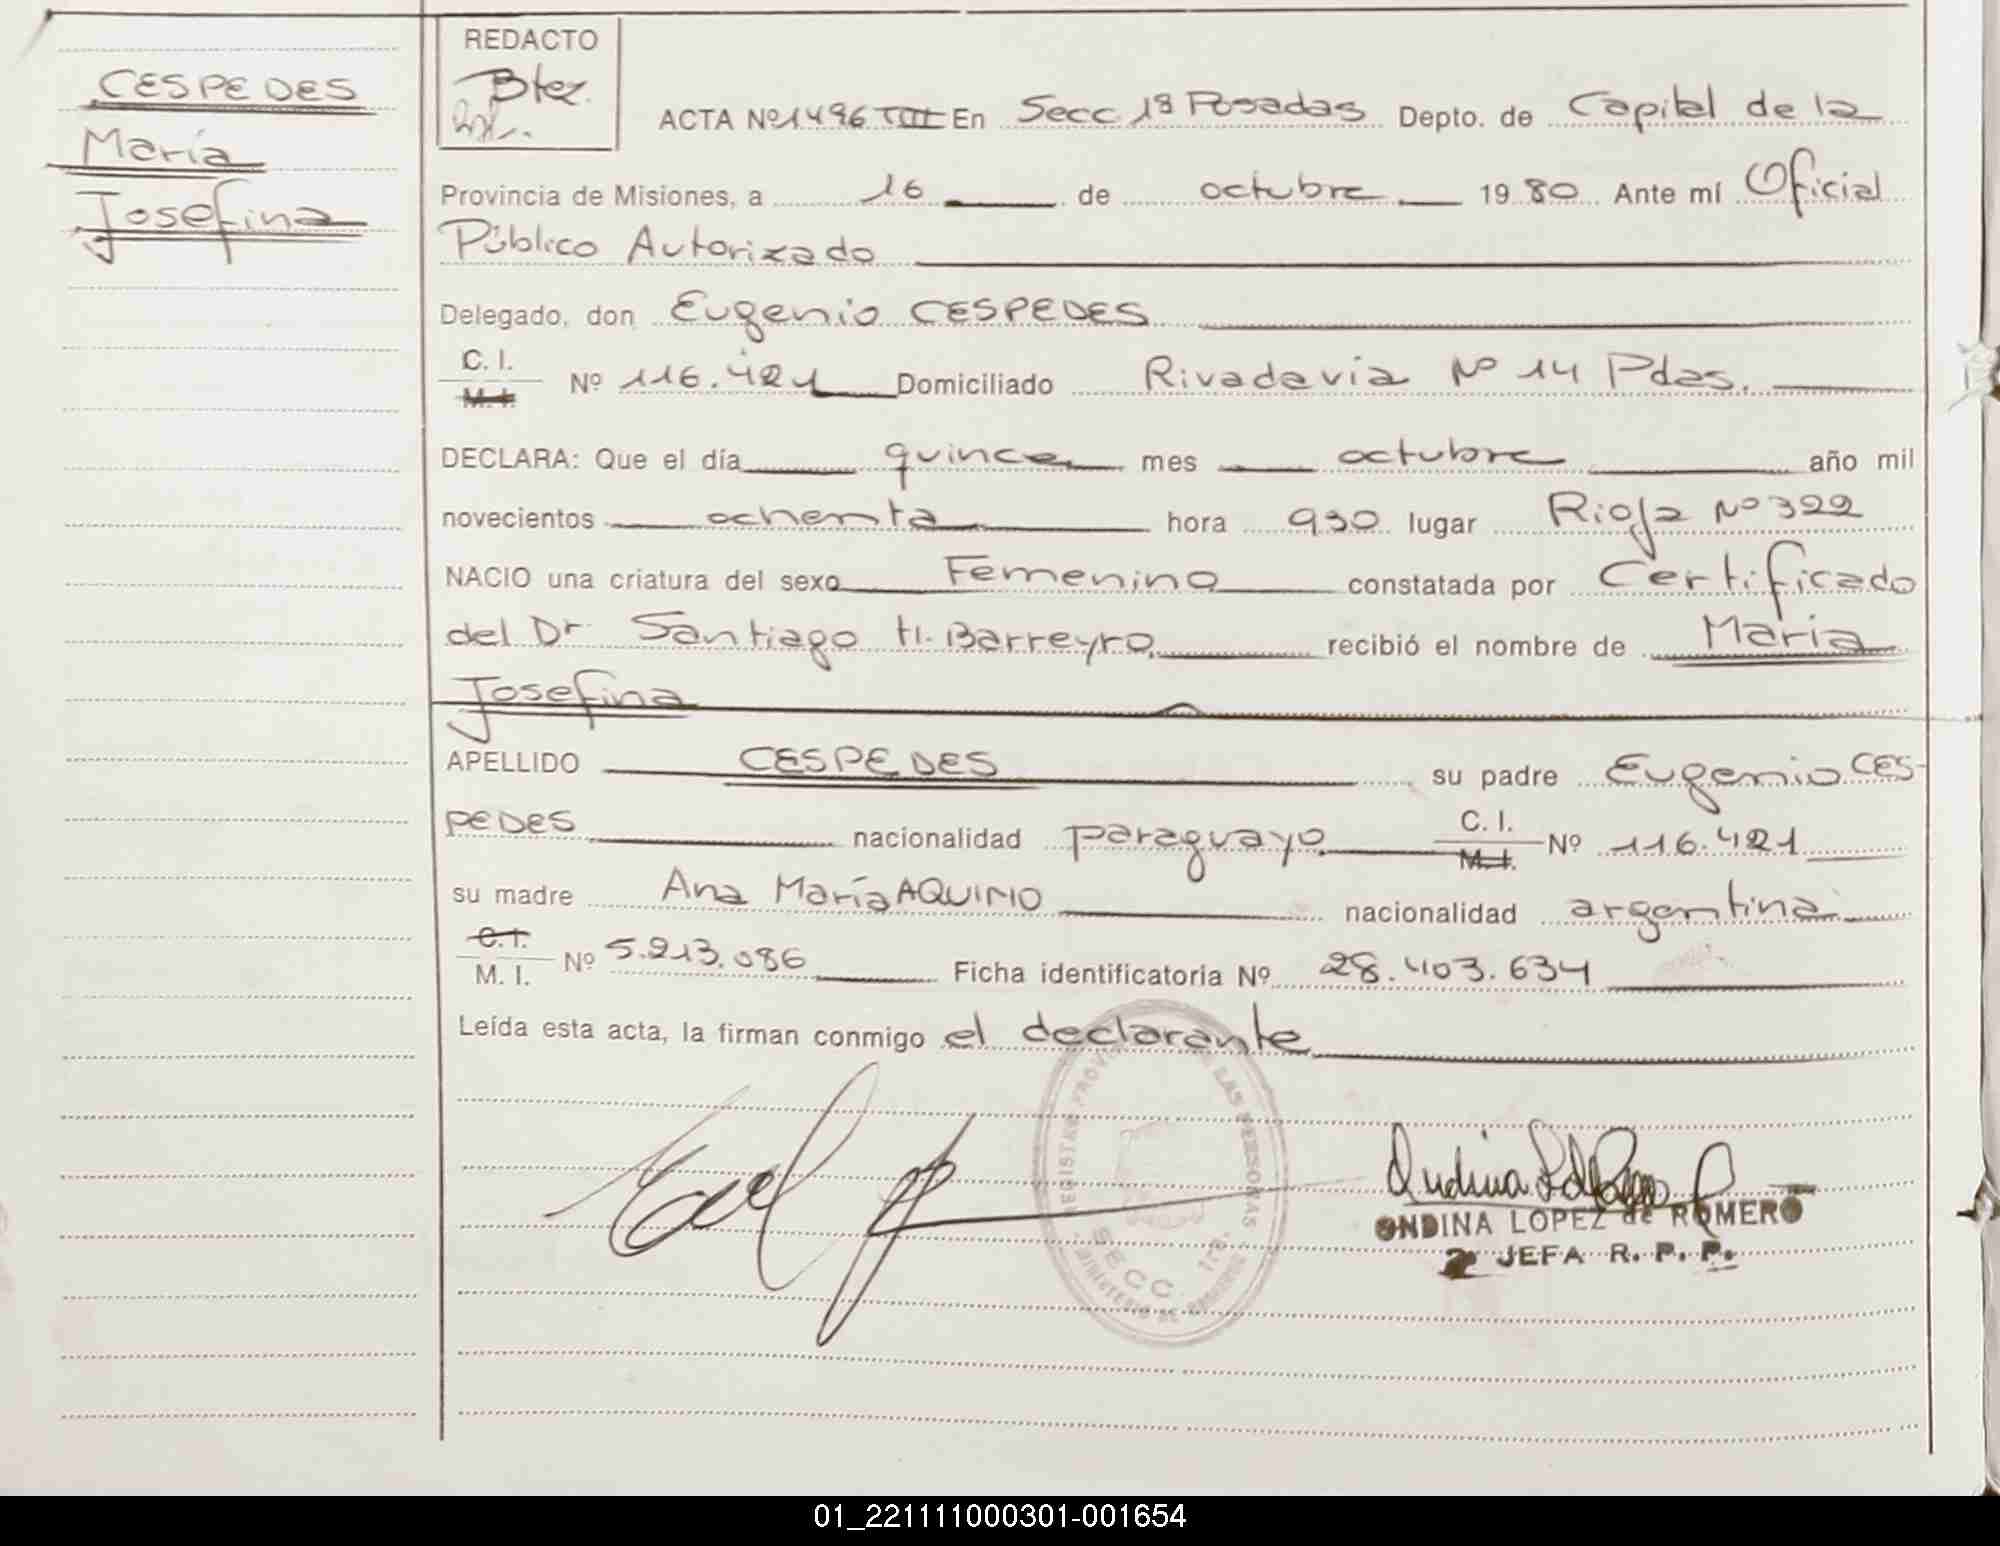 CESPEDES
María
Josefina
REDACTO
Btez.
ACTA Nº 1496 TIII En Secc 1ª Posadas Depto. de Capital de la
Provincia de Misiones, a 16 de octubre 1980 Ante mí Oficial
Público Autorizado
Delegado, don Eugenio CESPEDES
C. I.
M. I. Nº 116.421 Domiciliado Rivadavia Nº 14 Pdas.
DECLARA: Que el día quince mes octubre año mil
novecientos ochenta hora 930 lugar Rioja Nº 322
NACIO una criatura del sexo Femenino constatada por Certificado
del Dr Santiago H. Barreyro recibió el nombre de María
Josefina
APELLIDO CESPEDES su padre Eugenio CES-
PEDES nacionalidad paraguayo C. I.
M. I. Nº 116.421
su madre Ana María AQUINO nacionalidad argentina
C. I.
M. I. Nº 5.213.086 Ficha identificatoria Nº 28.403.634
Leída esta acta, la firman conmigo el declarante
REGISTRO PROV LAS PERSONAS
SECC. 1ra.
MINISTERIO DE GOBIERNO
ONDINA LOPEZ de ROMERO
2 JEFA R. P. P.
01_221111000301-001654